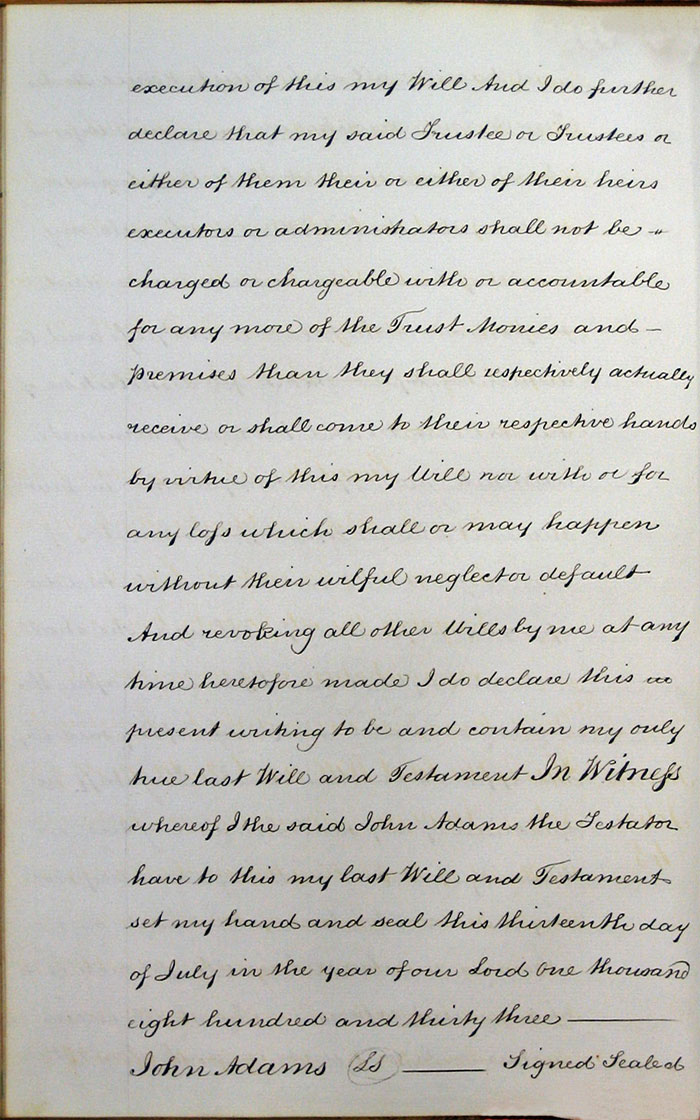 execution of this my Will And I do further
declare that my said Trustee or Trustees or
either of them their or either of their heirs
executors or administrators shall not be -
charged or chargeable with or accountable
for any more of the Trust Monies and -
premises than they shall respectively actually
receive or shall come to their respective hands
by virtue of this my Will nor with or for
any loſs which shall or may happen
without their wilful neglect or default
And revoking all other Wills by me at any
time heretofore made I do declare this
present writing to be and contain my only
true last Will and Testament In Witneſs
whereof I the said John Adams the Testator
have to this my last Will and Testament
set my hand and seal this thirteenth day
of July in the year of our Lord One thousand
eight hundred and thirty three ———
John Adams LS ——— Signed Sealed